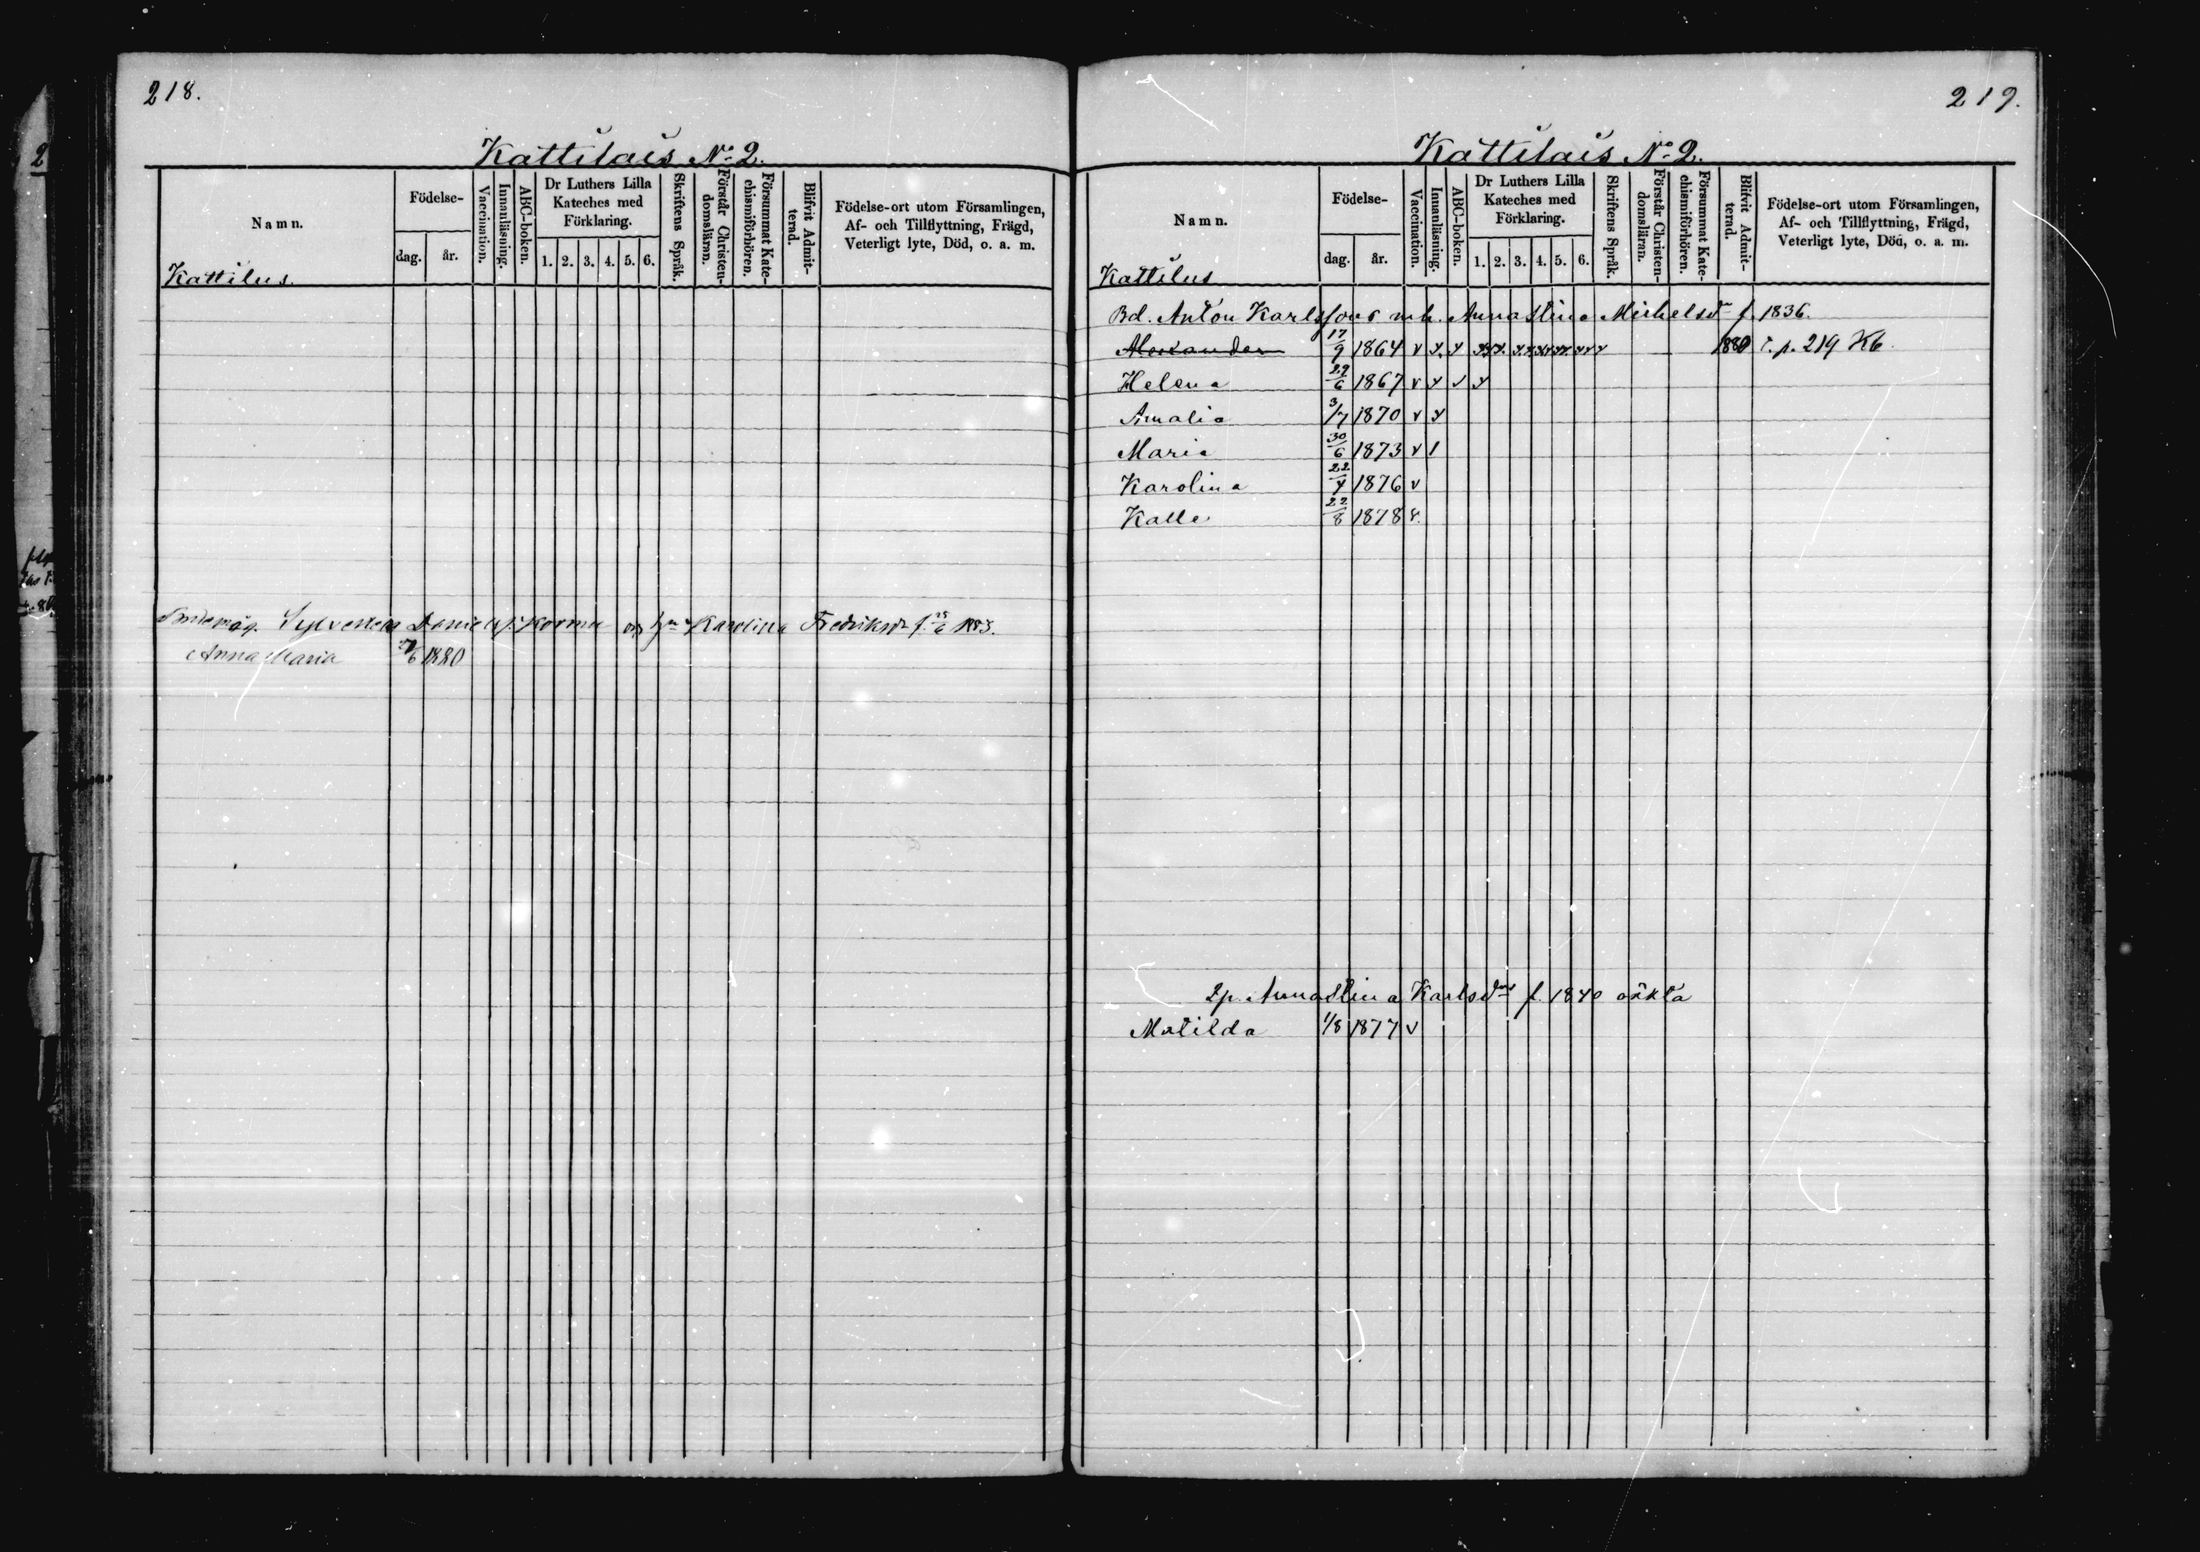 218.
Kattilais No 2.
Namn.
Födelse-
dag. år.
Vaccination.
Innanläsning.
ABC-boken.
Dr Luthers Lilla Kateches med Förklaring.
1. 2. 3. 4. 5. 6.
Skriftens Språk.
Förstår Christendomsläran.
Försummat Katechismiförhören.
Blifvit Admitterad.
Födelse-ort utom Församlingen, Af- och Tillflyttning, Frägd, Veterligt lyte, Död, o. a. m.
Kattilus.
Karolina Fredriksdr f.
Anna Maria 1880
219.
Kattilais No 2.
Namn.
Födelse-
dag. år.
Vaccination.
Innanläsning.
ABC-boken.
Dr Luthers Lilla Kateches med Förklaring.
1. 2. 3. 4. 5. 6.
Skriftens Språk.
Förstår Christendomsläran.
Försummat Katechismiförhören.
Blifvit Admitterad.
Födelse-ort utom Församlingen, Af- och Tillflyttning, Frägd, Veterligt lyte, Död, o. a. m.
Kattilus
Bd. Anton Karlssons m h. Anna Stina Michelsdr f. 1836.
Alexander 17/9 1864 v 1880 t. p. 219 Kb
Helena 29/6 1867 v
Amalia 3/7 1870 v
Maria 30/6 1873 v 1
Karolina 22/4 1876 v
Kalle 22/8 1878 v.
Anna Stina Karlsdrs f. 1840 oäkta
Matilda 1/8 1877 v